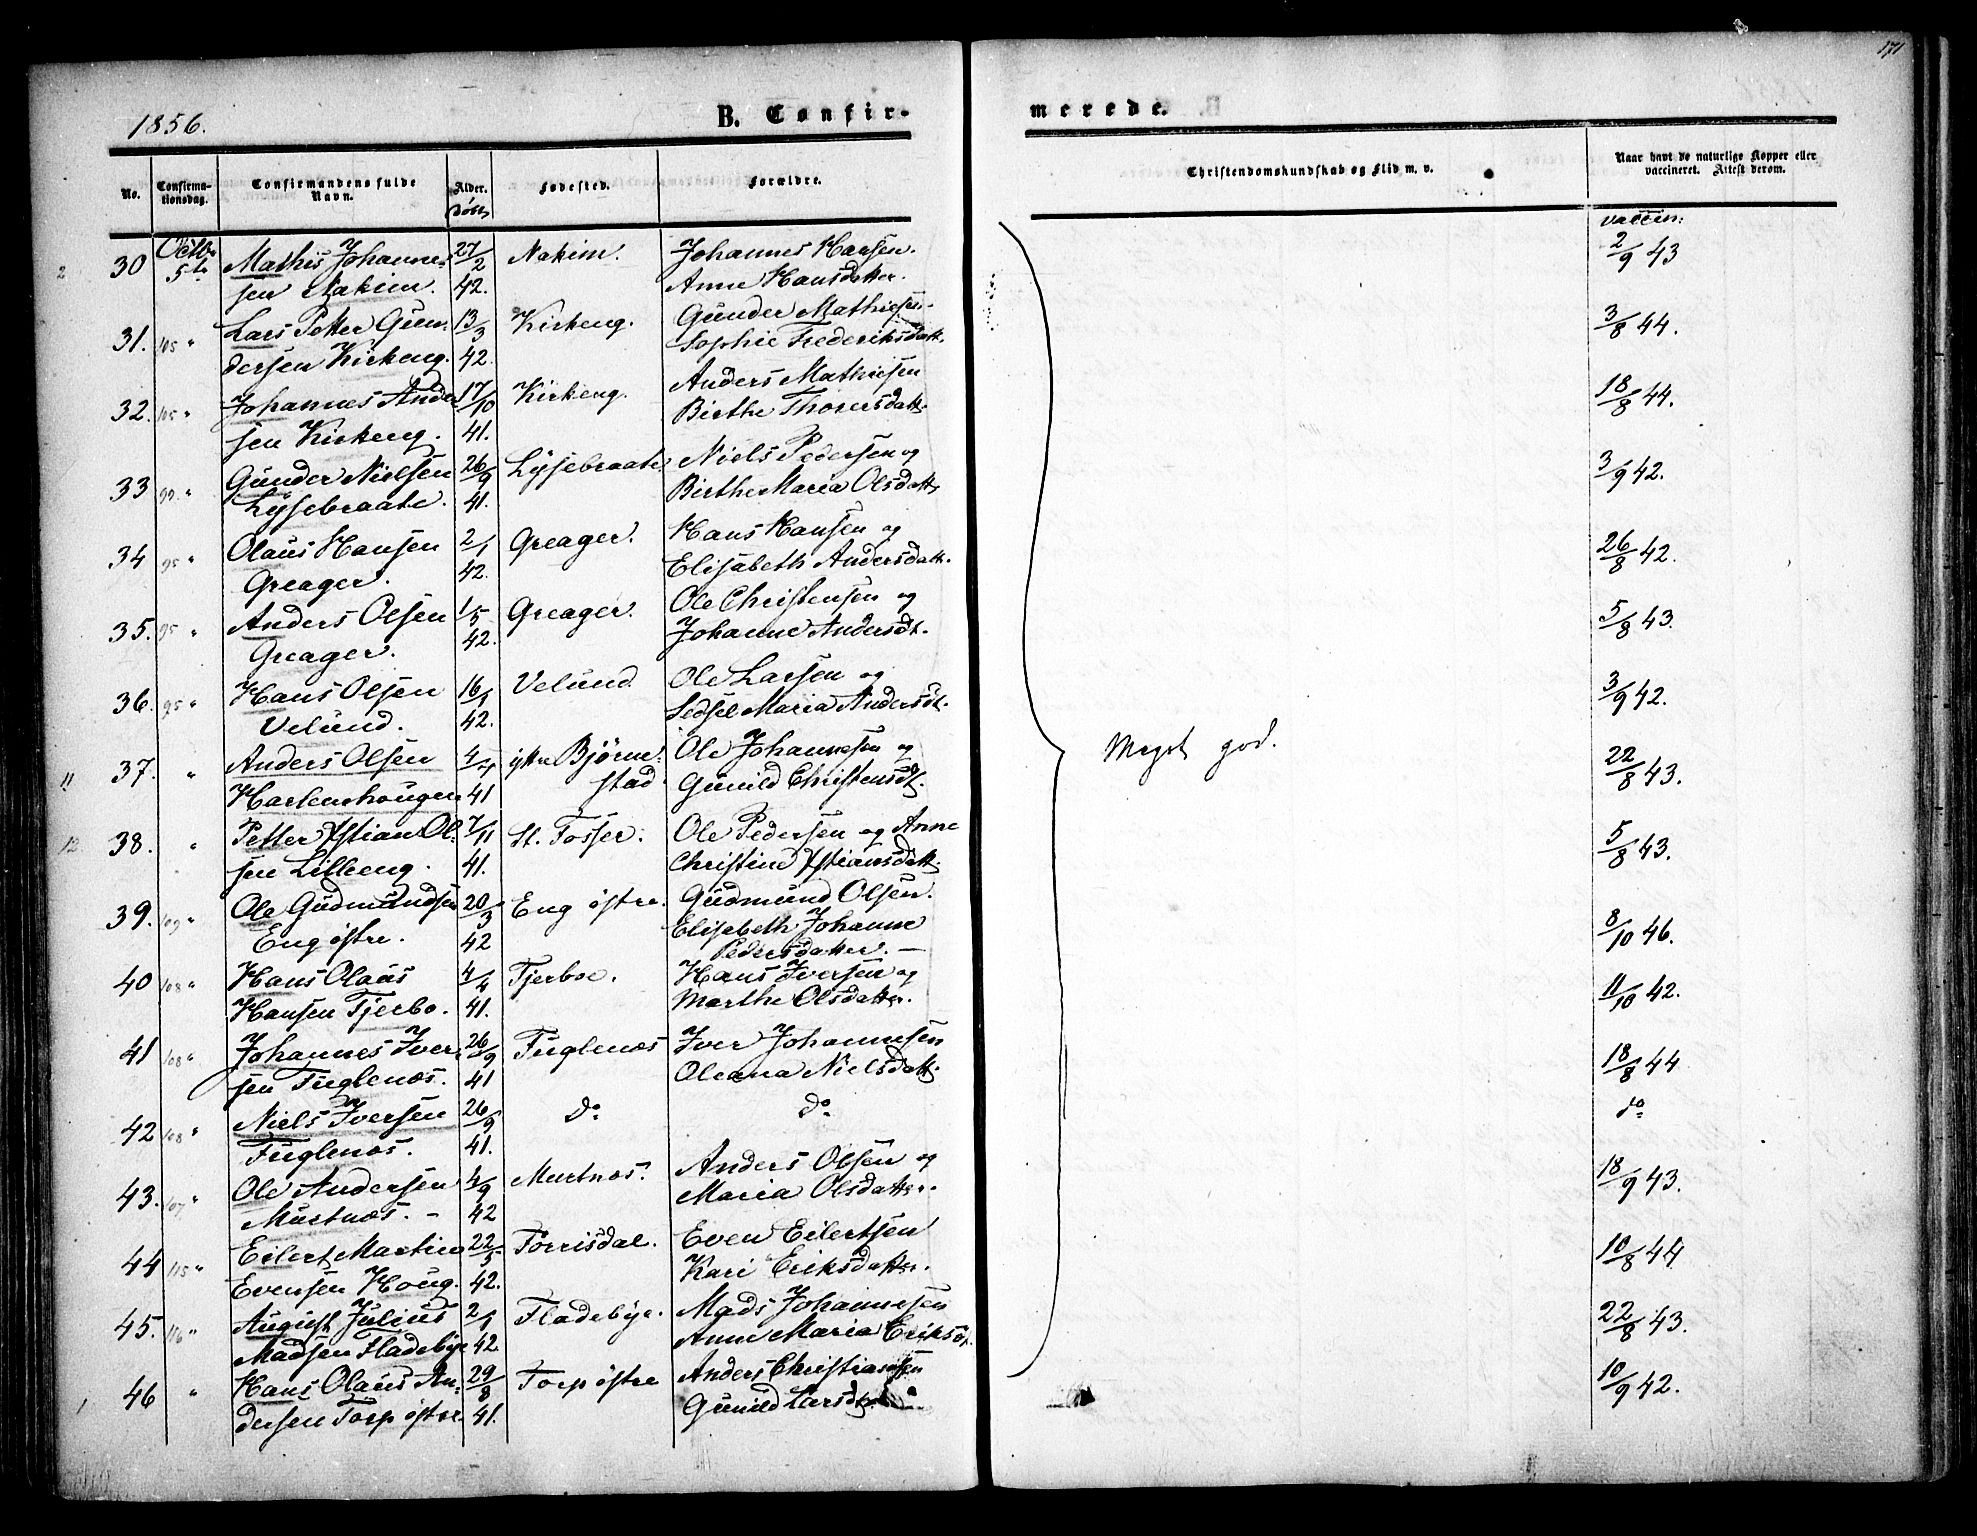 171
1856.
B. Confir-
merede.
No.
Confirma-
tionsdag.
Confirmandens fulde
Navn.
Alder.
Fødested.
Forældre.
Christendomskundskab og Flid m. v.
Naar havt de naturlige Kopper eller
vaccineret. Attest derom.
vaccin:
2 30 Octbr 5te Mathis Johanne- 27/2 Nakim. Johannes Hansen. 2/9 43
sen Nakim. 42. Anne Hansdatter.
31. 105 " Lars Petter Gun- 13/3 Kirkeng. Gunder Mathiesen 3/8 44.
dersen Kirkeng. 42. Sophie Frederiksdatt.
32. 105 " Johannes Ander 17/10 Kirkeng. Anders Mathiesen 18/8 44.
sen Kirkeng. 41. Birthe Thorersdatt.
33 99. " Gunder Nielsen 26/9 Lysebraate Niels Pedersen og 3/9 42.
Lysebraate. 41. Birthe Maria Olsdatt
34 95 " Olaus Hansen 2/1 Greager. Hans Hansen og 26/8 42.
Greager. 42. Elisabeth Andersdatt.
35. 95 " Anders Olsen 1/5 Greager. Ole Christensen og 5/8 43.
Greager. 42. Johanne Andersdt.
36. 95 " Hans Olsen 16/1 Velund Ole Larsen og 3/9 42.
Velund. 42. Sedsel Maria Andersdt.
11 37. " Anders Olsen 4/7 ytre Bjørne- Ole Johannesen og Meget god. 22/8 43.
Harlenshougen 41 stad. Gunild Christensdt.
12 38. " Petter Xstian Ol- 7/11 St. Tosser. Ole Pedersen og Anne 5/8 43.
sen Lilleeng. 41. Christine Xstiansdatt.
39. 109 " Ole Gudmundsen 20/3 Eng østre. Gudmund Olsen. 8/10 46.
Eng østre. 42 Elisebeth Johanne
Pedersdatter. —
40 108 " Hans Olaus 4/4 Tjerboe. Hans Iversen og 11/10 42.
Hansen Tjerbo. 41. Marthe Olsdatter.
41 108 " Johannes Iver- 26/9 Fuglenæs Iver Johannesen 18/8 44
sen Fuglenæs. 41 Oleana Nielsdatt.
42 108 " Niels Iversen 26/9 do do do
Fuglenæs. 41.
43. 107 " Ole Andersen 4/9 Murtnæs. Anders Olsen og 18/9 43.
Murtnæs. - 42 Maria Olsdatter.
44 115 " Eilert Martin 22/5 Torrisdal. Even Eilertsen 10/8 44
Evensen Houg. 42. Kari Eriksdatter.
45. 116 " August Julius 2/1 Fladebye. Mads Johannesen 22/8 43.
Madsen Fladebye 42. Anne Maria Eriksdt.
1 46 " Hans Olaus An- 29/8 Torp østre Anders Christiansen 10/9 42.
dersen Torp østre. 41. Gunild Larsdt.